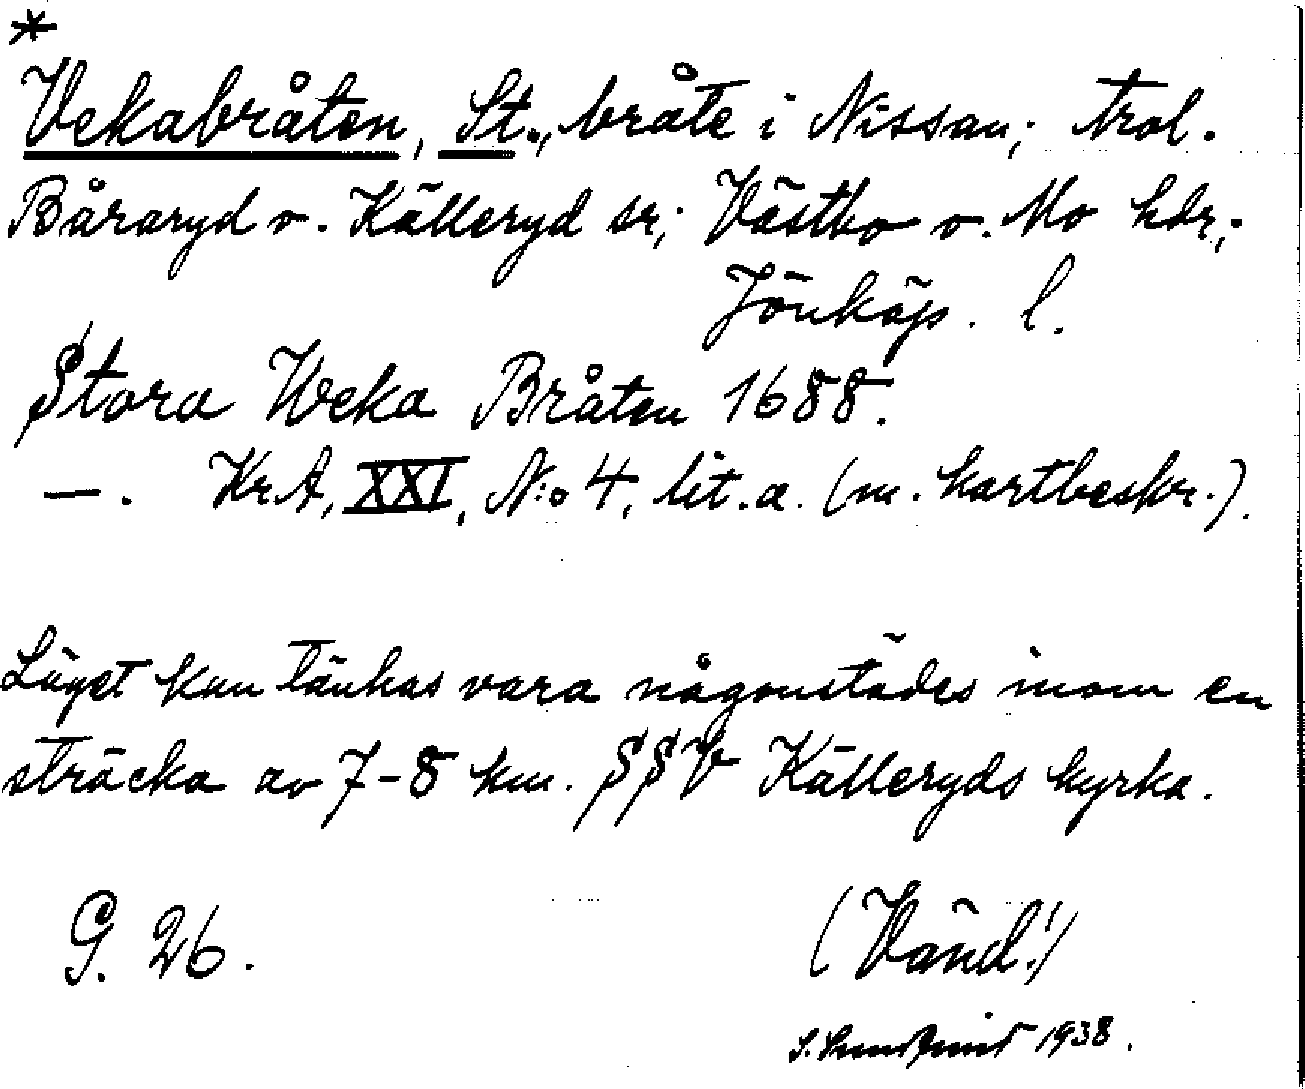 *
Vekabråten, St., bråte i Nissan; trol.
Båraryd o. Källeryd sr; Västbo o. Mo hdr;
Jönköp. l.
Stora Weka Bråten 1688.
—. KrA, XXI, N:o 4, lit. a. (m. kartbeskr.).
Läget kan tänkas vara någonstädes inom en
sträcka av 7-8 km. SSV Källeryds kyrka.
G. 26.
(Vänd!)
1938.